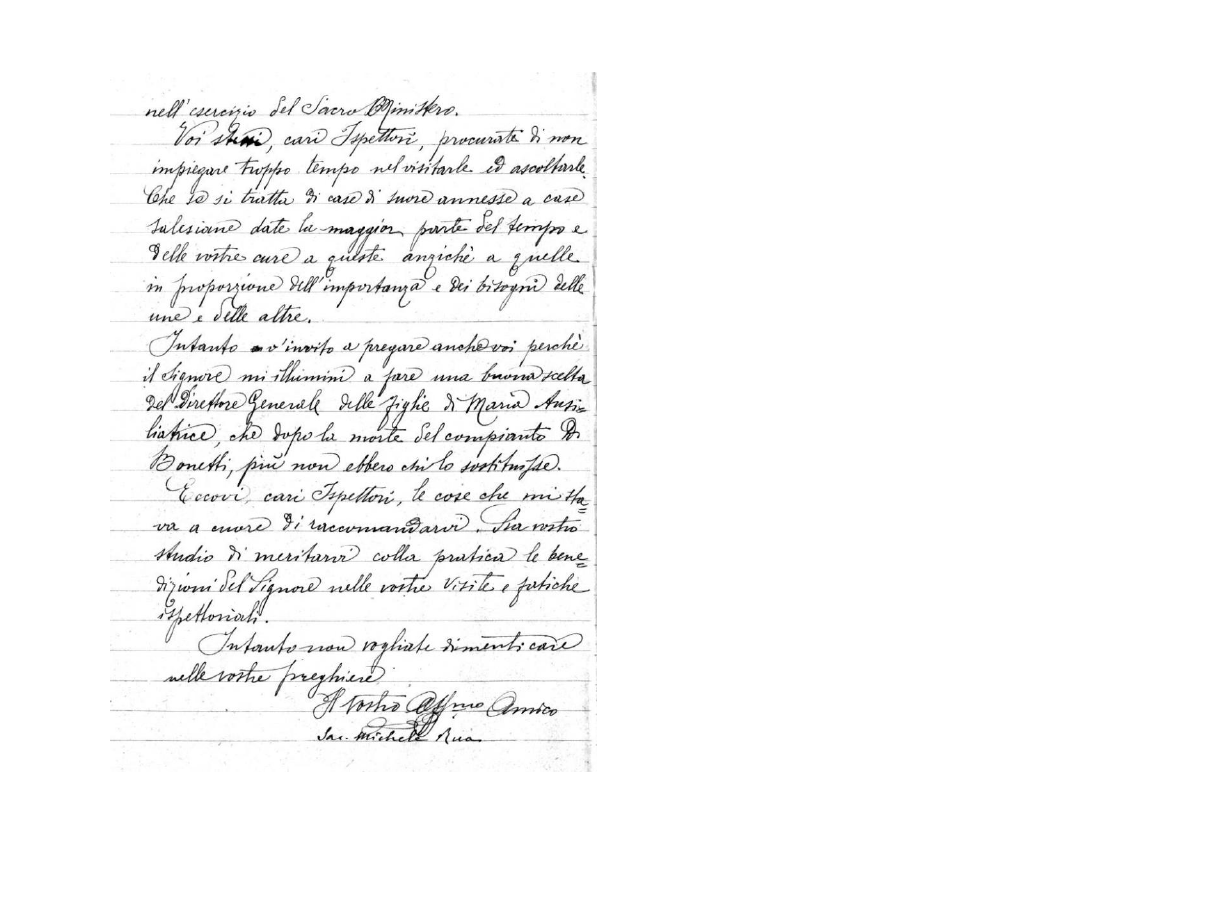 nell'esercizio del Sacro Ministero.
Voi stessi, cari Ispettori, procurate di non
impiegare troppo tempo nel visitarle ed ascoltarle.
Che se si tratta di case di suore annesse a case
salesiane date la maggior parte del tempo e
delle vostre cure a queste anzichè a quelle
in proporzione dell'importanza e dei bisogni delle
une e delle altre.
Intanto v'invito a pregare anche voi perchè
il Signore mi illumini a fare una buona scelta
del Direttore Generale delle figlie di Maria Ausi=
liatrice, che dopo la morte del compianto D.
Bonetti, più non ebbero chi lo sostituisse.
Eccovi, cari Ispettori, le cose che mi sta=
va a cuore di raccomandarvi. Sia vostro
studio di meritarvi colla pratica le bene=
dizioni del Signore nelle vostre visite e fatiche
ispettoriali.
Intanto non vogliate dimenticare
nelle vostre preghiere
Il vostro Affmo Amico
Sac. Michele Rua